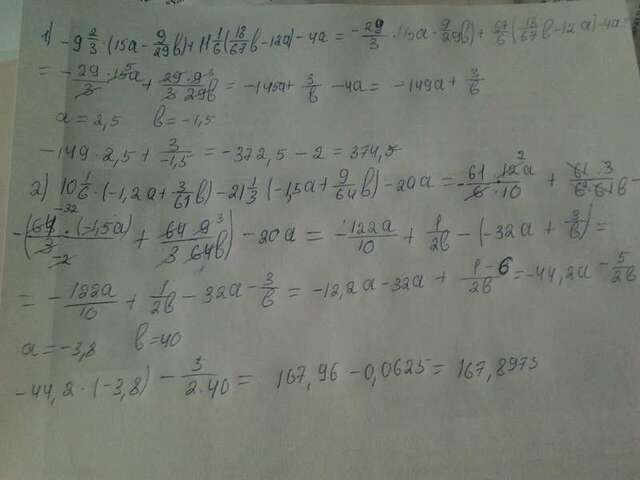 1) -9 2/3 · (15a - 9/29 b) + 11 1/6 (18/67 b - 12a) - 4a = -29/3 · (15a - 9/29 b) + 67/6 (18/67 b - 12a) - 4a =
= -29 · 15a / 3 + 29 · 9 / 3 29b = -145a + 3/b - 4a = -149a + 3/b
a = 2,5 b = -1,5
-149 · 2,5 + 3/-1,5 = -372,5 - 2 = 374,5
2) 10 1/6 · (-1,2a + 3/61 b) - 21 1/3 (-1,5a + 9/64 b) - 20a = -61 · 12a / 6 · 10 + 61 · 3 / 6 · 61b -
- (64 · (-1,5a) / 3 + 64 9 / 3 64b) - 20a = -122a/10 + 1/2b - (-32a + 3/b) =
= -122a/10 + 1/2b - 32a - 3/b = -12,2a - 32a + 1-6/2b = -44,2a - 5/2b
a = -3,8 b = 40
-44,2 · (-3,8) - 5/2·40 = 167,96 - 0,0625 = 167,8975